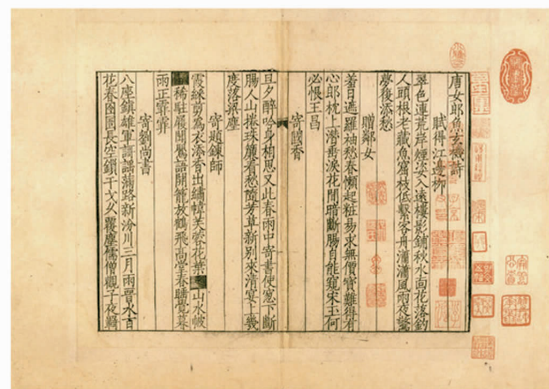 唐女郎魚玄機詩
賦得江邊柳
翠色連荒岸煙姿入遠樓影鋪秋水面花落釣
人頭根老藏魚窟枝低繫客舟瀟瀟風雨夜驚
夢復添愁
贈鄰女
羞日遮羅袖愁春懶起粧易求無價寶難得有
心郎枕上潛垂淚花間暗斷腸自能窺宋玉何
必恨王昌
寄國香
旦夕醉吟身相思又此春雨中寄書使窓下斷
腸人山捲珠簾看愁隨芳草新別來清宴上幾
度落梁塵
寄題鍊師
霞綵剪為衣添香出繡幃芙蓉花葉山水帔
稀駐履聞鶯語開籠放鶴飛高堂春睡覺暮
雨正霏霏
寄劉尚書
八座鎮雄軍歌謠滿路新汾川三月雨晉水百
花春囹圄長空鎖干戈久覆塵儒僧觀子夜羈